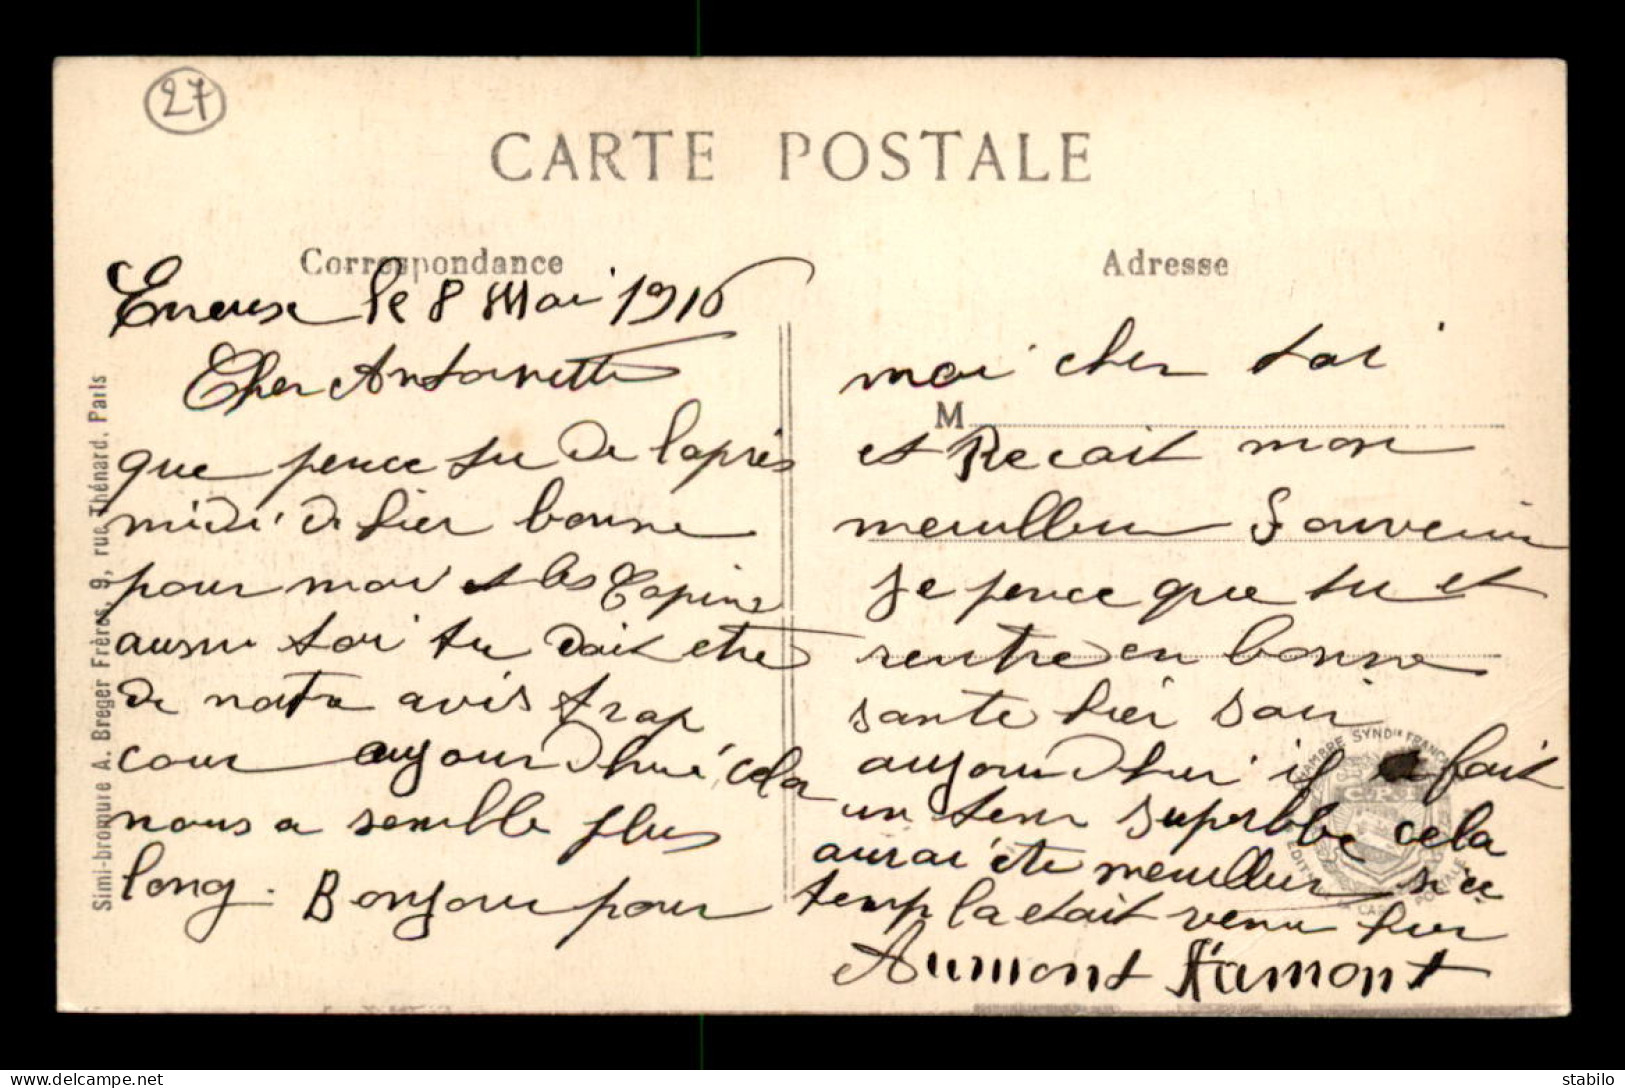 27
CARTE POSTALE
Correspondance
Adresse
Evreux le 8 Mai 1916
Cher Antoinette
que pence tu de laprés
midi de hier bonne
pour moi et les Copine
aussi toi tu doit etre
de notre avis trop
cour aujourdhui cela
nous a semble plus
long. Bonjour pour
moi cher toi
M
et Recait mon
meuilleur Souvenir
je pence que tu et
rentre en bonne
sante hier soir
aujourdhui il fait
un tem superbbe cela
aurai ete meuilleur si ce
temp la etait venu hier
Aumont Aumont
Simi-bromure A. Breger Frères, 9, rue Thénard, Paris
CHAMBRE SYNDle FRANÇAISE
C.P.I